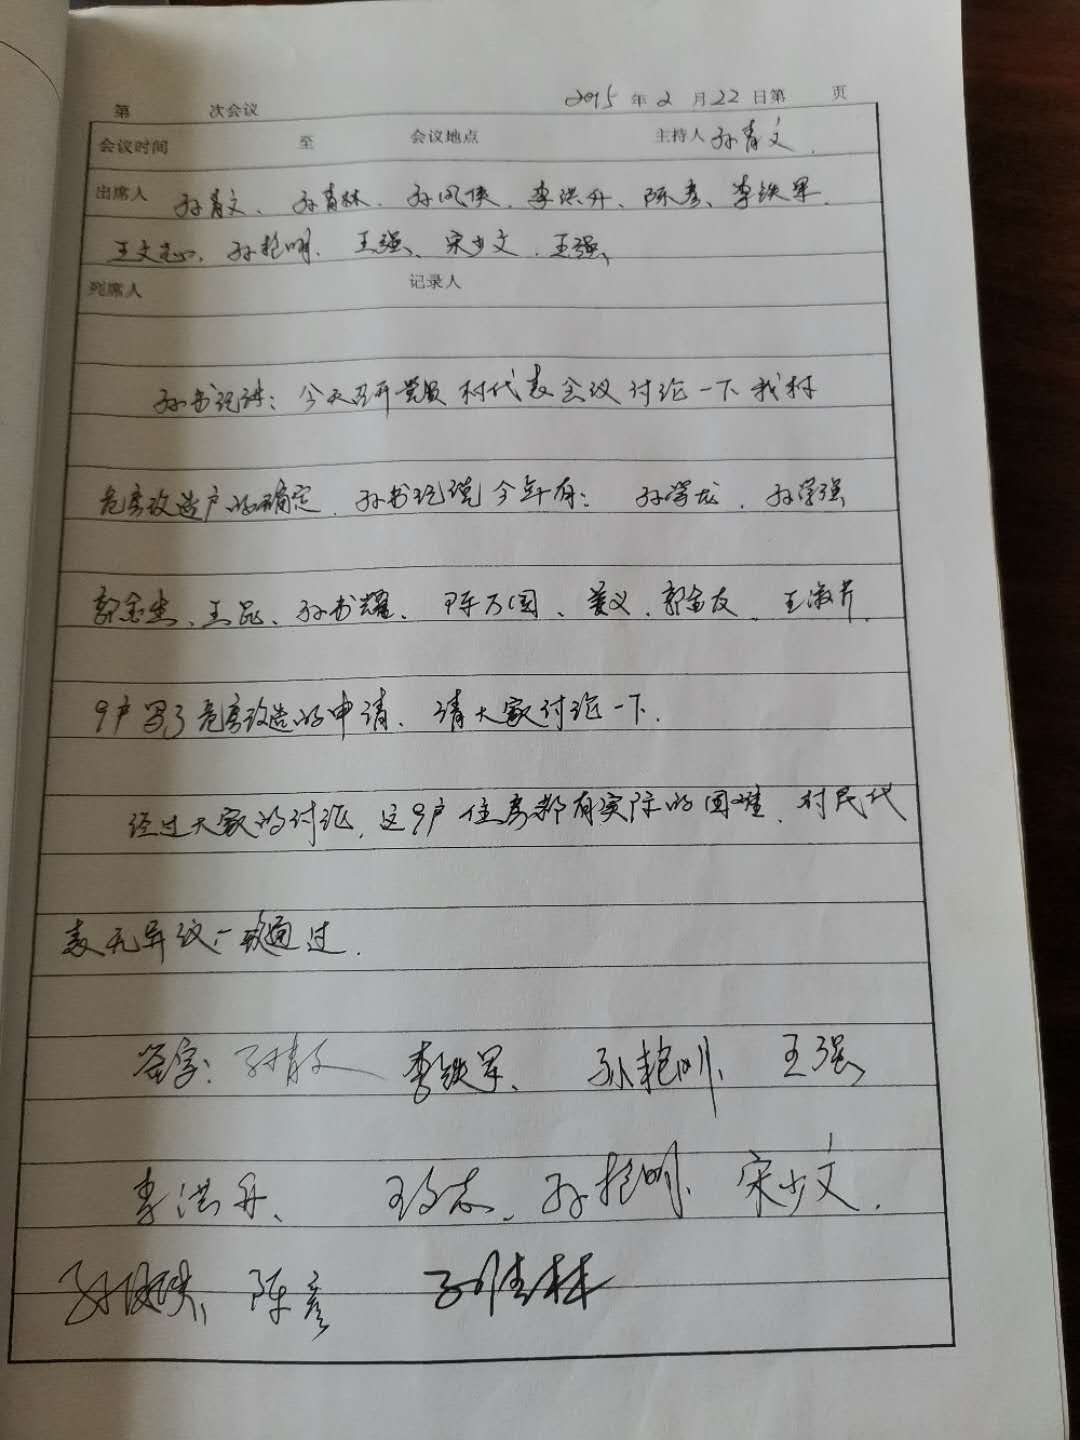 第 次会议 2015 年 2 月 22 日第 页
会议时间 至 会议地点 主持人 孙青文.
出席人 孙青文、孙青林、孙凤侠、李洪升、陈彦、李铁军、
王文志、孙艳明、王强、宋少文、王强、
列席人 记录人
孙书记讲：今天召开党员村代表会议讨论一下我村
危房改造户的确定、孙书记说今年有：孙学龙、孙学强
郭金生、王昆、孙书耀、陈万国、姜义、郭金友、王淑芹、
9户写了危房改造的申请、请大家讨论一下.
经过大家的讨论、这9户住房都有实际的困难、村民代
表无异议、一致通过.
签字：孙青文 李铁军、孙艳明、王强、
李洪升、王文志、孙艳明、宋少文.
陈彦